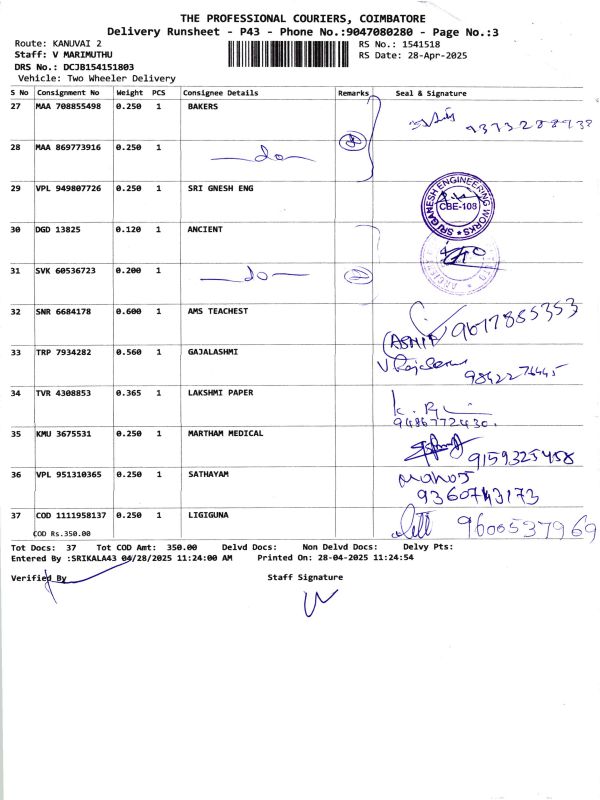 THE PROFESSIONAL COURIERS, COIMBATORE
Delivery Runsheet - P43 - Phone No.:9047080280 - Page No.:3
Route: KANUVAI 2
RS No.: 1541518
Staff: V MARIMUTHU
RS Date: 28-Apr-2025
DRS No.: DCJB154151803
Vehicle: Two Wheeler Delivery
S No Consignment No Weight PCS Consignee Details Remarks Seal & Signature
27 MAA 708855498 0.250 1 BAKERS
28 MAA 869773916 0.250 1 —do— 2
29 VPL 949807726 0.250 1 SRI GNESH ENG
SRI GANESH ENGINEERING WORKS
CBE-108
30 DGD 13825 0.120 1 ANCIENT
31 SVK 60536723 0.200 1 —do— 2
32 SNR 6684178 0.600 1 AMS TEACHEST 9617855353
33 TRP 7934282 0.560 1 GAJALASHMI
34 TVR 4308853 0.365 1 LAKSHMI PAPER
9486772430.
35 KMU 3675531 0.250 1 MARTHAM MEDICAL 9159325458
36 VPL 951310365 0.250 1 SATHAYAM
9360743173
37 COD 1111958137 0.250 1 LIGIGUNA 9600537969
COD Rs.350.00
Tot Docs: 37 Tot COD Amt: 350.00 Delvd Docs: Non Delvd Docs: Delvy Pts:
Entered By :SRIKALA43 04/28/2025 11:24:00 AM Printed On: 28-04-2025 11:24:54
Verified By Staff Signature